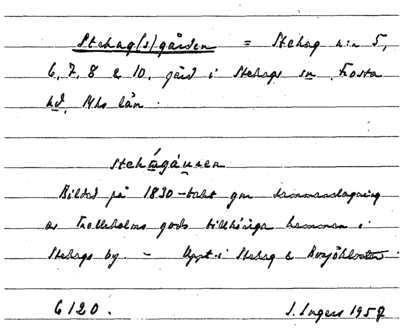 Stehag(s)gården = Stehag n:r 5,
6, 7, 8 & 10, gård i Stehags sn, Frosta
hd, Mhs län.
stehāgáɳen
Bildad på 1830-talet gm sammanslagning
av Trolleholms gods tillhöriga hemman i
Stehags by. – Uppt. i Stehag &
6120. I. Ingers 1957